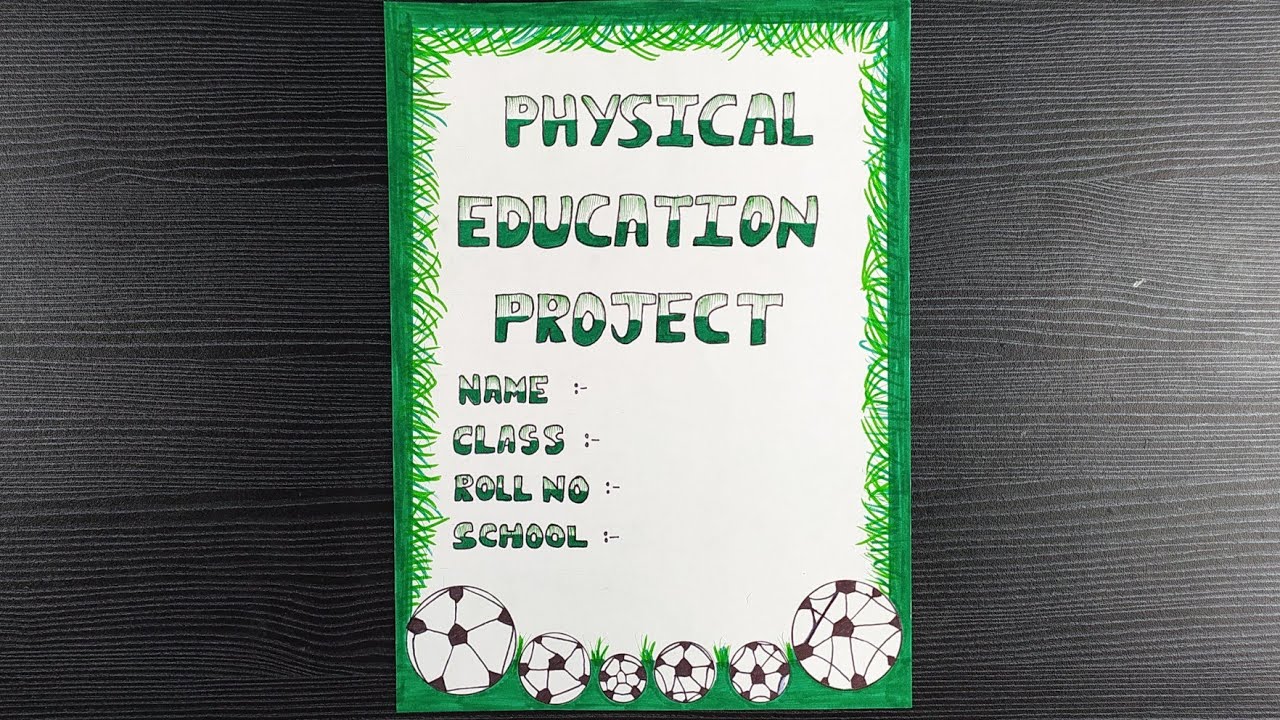 PHYSICAL
EDUCATION
PROJECT
NAME :-
CLASS :-
ROLL NO :-
SCHOOL :-